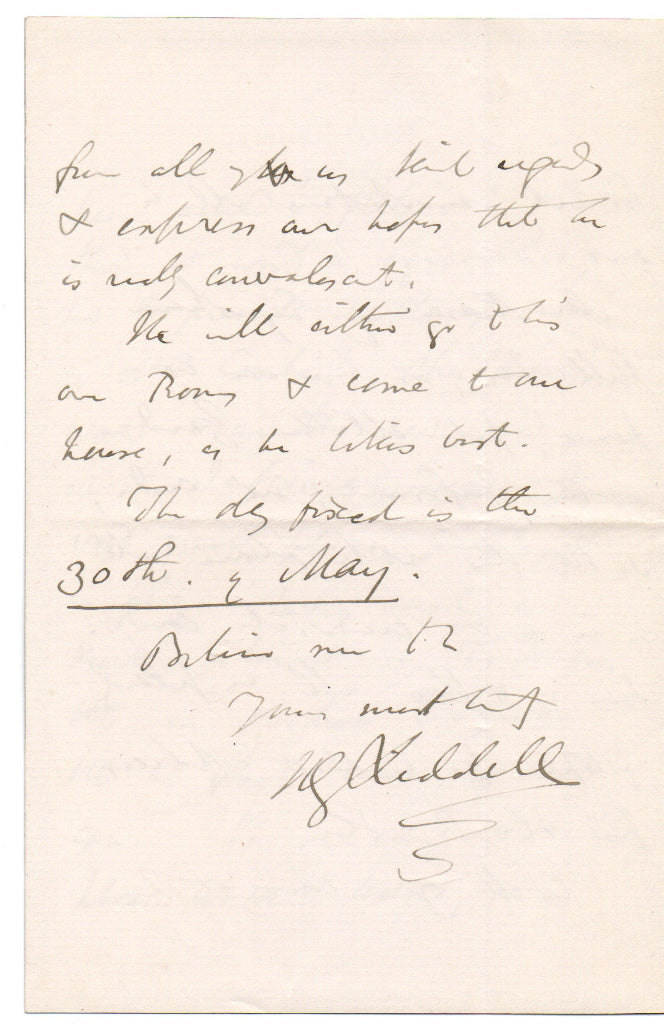 from all of us kind regards
& express our hopes that he
is really convalescent.
He will either go to his
own Rooms & come to our
house, as he likes best.
The day fixed is the
30th. of May.
Believe me to
Yours most truly
HG Liddell